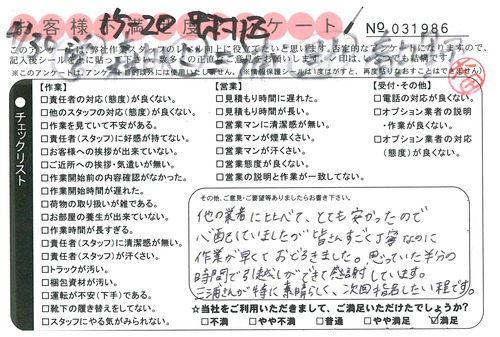 お客様満足度アンケート
15:20
No 031986
このアンケートは、弊社作業スタッフのレベル向上に役立てたいと思います。否定的なアンケートになりますので、
※このアンケートは、アンケート目的以外には使用いたしません。(情報保護シールは1度はがすと、再度貼りなおすことはできません)
チェックリスト
【作業】
□責任者の対応(態度)が良くない。
□他のスタッフの対応(態度)が良くない。
□作業を見ていて不安がある。
□責任者(スタッフ)に好感が持てない。
□お客様への挨拶が出来ていない。
□ご近所への挨拶・気遣いが無い。
□作業開始前の内容確認がなかった。
□作業開始時間が遅れた。
□荷物の取り扱いが雑である。
□お部屋の養生が出来ていない。
□作業時間が長すぎる。
□責任者(スタッフ)に清潔感が無い。
□責任者(スタッフ)が汗くさい。
□トラックが汚い。
□梱包資材が汚い。
□運転が不安(下手)である。
□靴下の履き替えをしてない。
□スタッフにやる気がみられない。
【営業】
□見積もり時間に遅れた。
□見積もり時間が長い。
□営業マンに清潔感が無い。
□営業マンが煙草くさい。
□営業マンが汗くさい。
□営業態度が良くない。
□営業の説明と作業が一致してない。
【受付・その他】
□電話の対応が良くない。
□オプション業者の説明
・作業が良くない。
□オプション業者の対応
(態度)が良くない。
その他、ご意見・ご要望等ありましたらお書き下さい。
他の業者に比べて、とても安かったので
心配していましたが皆さんすごく丁寧なのに
作業が早くておどろきました。思っていた半分の
時間で引越しができて感謝しています。
三浦さんが特に素晴らしくて、次回指名したい程です。
☆当社をご利用いただきまして、ご満足いただけたでしょうか?
□不満 □やや不満 □普通 □やや満足 ☑満足